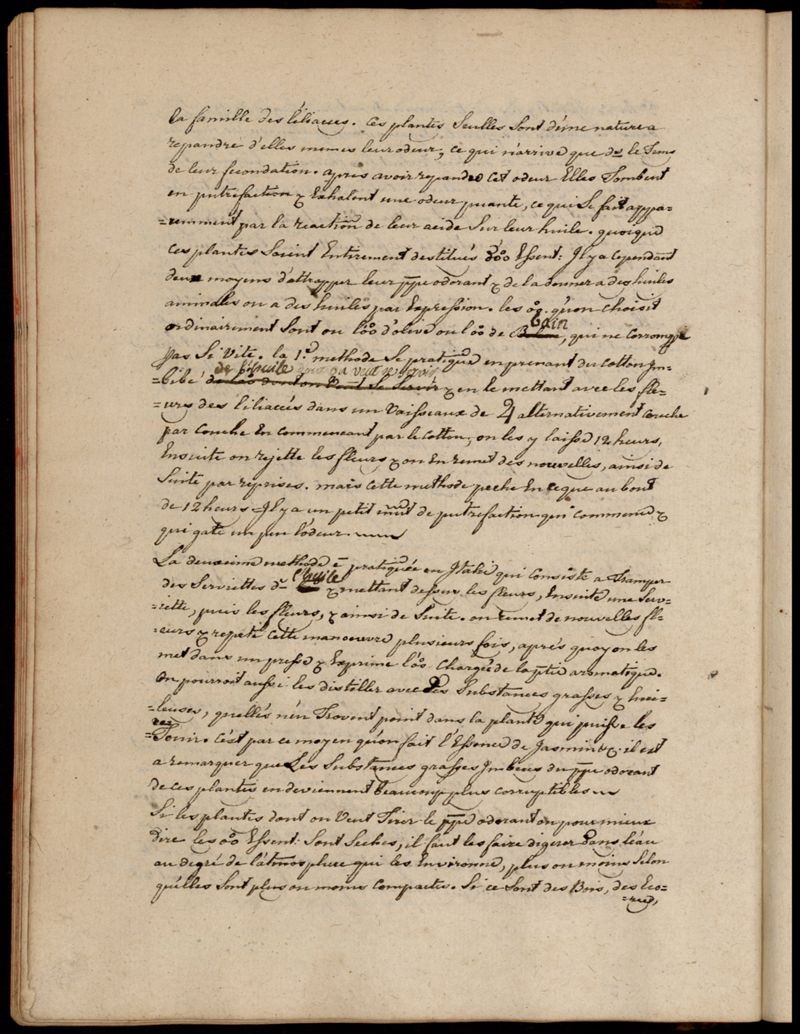 la famille des liliacées. Ces plantes Seulles Sont d'une nature a
repandre d'elles memes leur odeur, ce qui n'arrive que ds le Tems
de leur fecondation. apres avoir repandu cet odeur Elles Tombent
en putrefaction & Exhalent une odeur puante, ce qui Se fait appa-
=remment par la reaction de leur acide Sur leur huile. quoique
ces plantes Soient Entierement destitués Essent. Il y a cependant
deux moyens d'attrapper leur ppe odorant & de la donner a des huiles
animales ou a des huiles par Expression. les qu'on choisit
ordinairement Sont ou d'olive ou de Bain, qui ne corrompe
pas Si Vite. la 1e methode Se pratique en prenant du Cotton Im-
=bibé de l'huile dont on veut Se Servir & en le mettant avec les fle-
=urs des liliacés dans un Vaisseaux de alternativement couche
par couche En commencant par le Cotton, on les y laisse 12 heurs,
Ensuite on rejette les fleurs & on En remet des nouvelles, ainsi de
Suite par reprises. mais cette methode peche En ce que au bout
de 12 heurs Il y a un petit mvt de putrefaction qui commence &
qui gate un peu l'odeur.
La deuxieme methode e pratiquée en Italie qui consiste a Tramper
des Serviettes ds l'huile & mettant dessus les fleurs, Ensuite une Serv-
=iette, puis les fleurs, & ainsi de Suite. on remet de nouvelles fl-
=eurs & repete cette manoeuvre plusieurs fois, aprés quoy on les
met dans un presse & Exprime Chargée de la ptie aromatique.
On pourroit aussi les distiller avec des Substances grasses & hui-
=leuses, quelles n'en Trovent point dans la plante qui puisse les
=Tenir. C'est par ce moyen qu'on fait l'Essence de Jasmin & il est
a remarquer que Les Substances grasses Imbues du ppe odorant
de ces plantes en deviennent beaucoup plus corruptibles
Si les plantes dont on Veut Tirer le ppe odorant ou pour mieux
dire les Essent. Sont Seches, il faut les faire digerer dans l'eau
au degré de l'atmosphere qui les Environne, plus ou moins Selon
qu'elles Sont plus ou moins compactes. Si ce Sont des Bois, des Eco-
=rces,